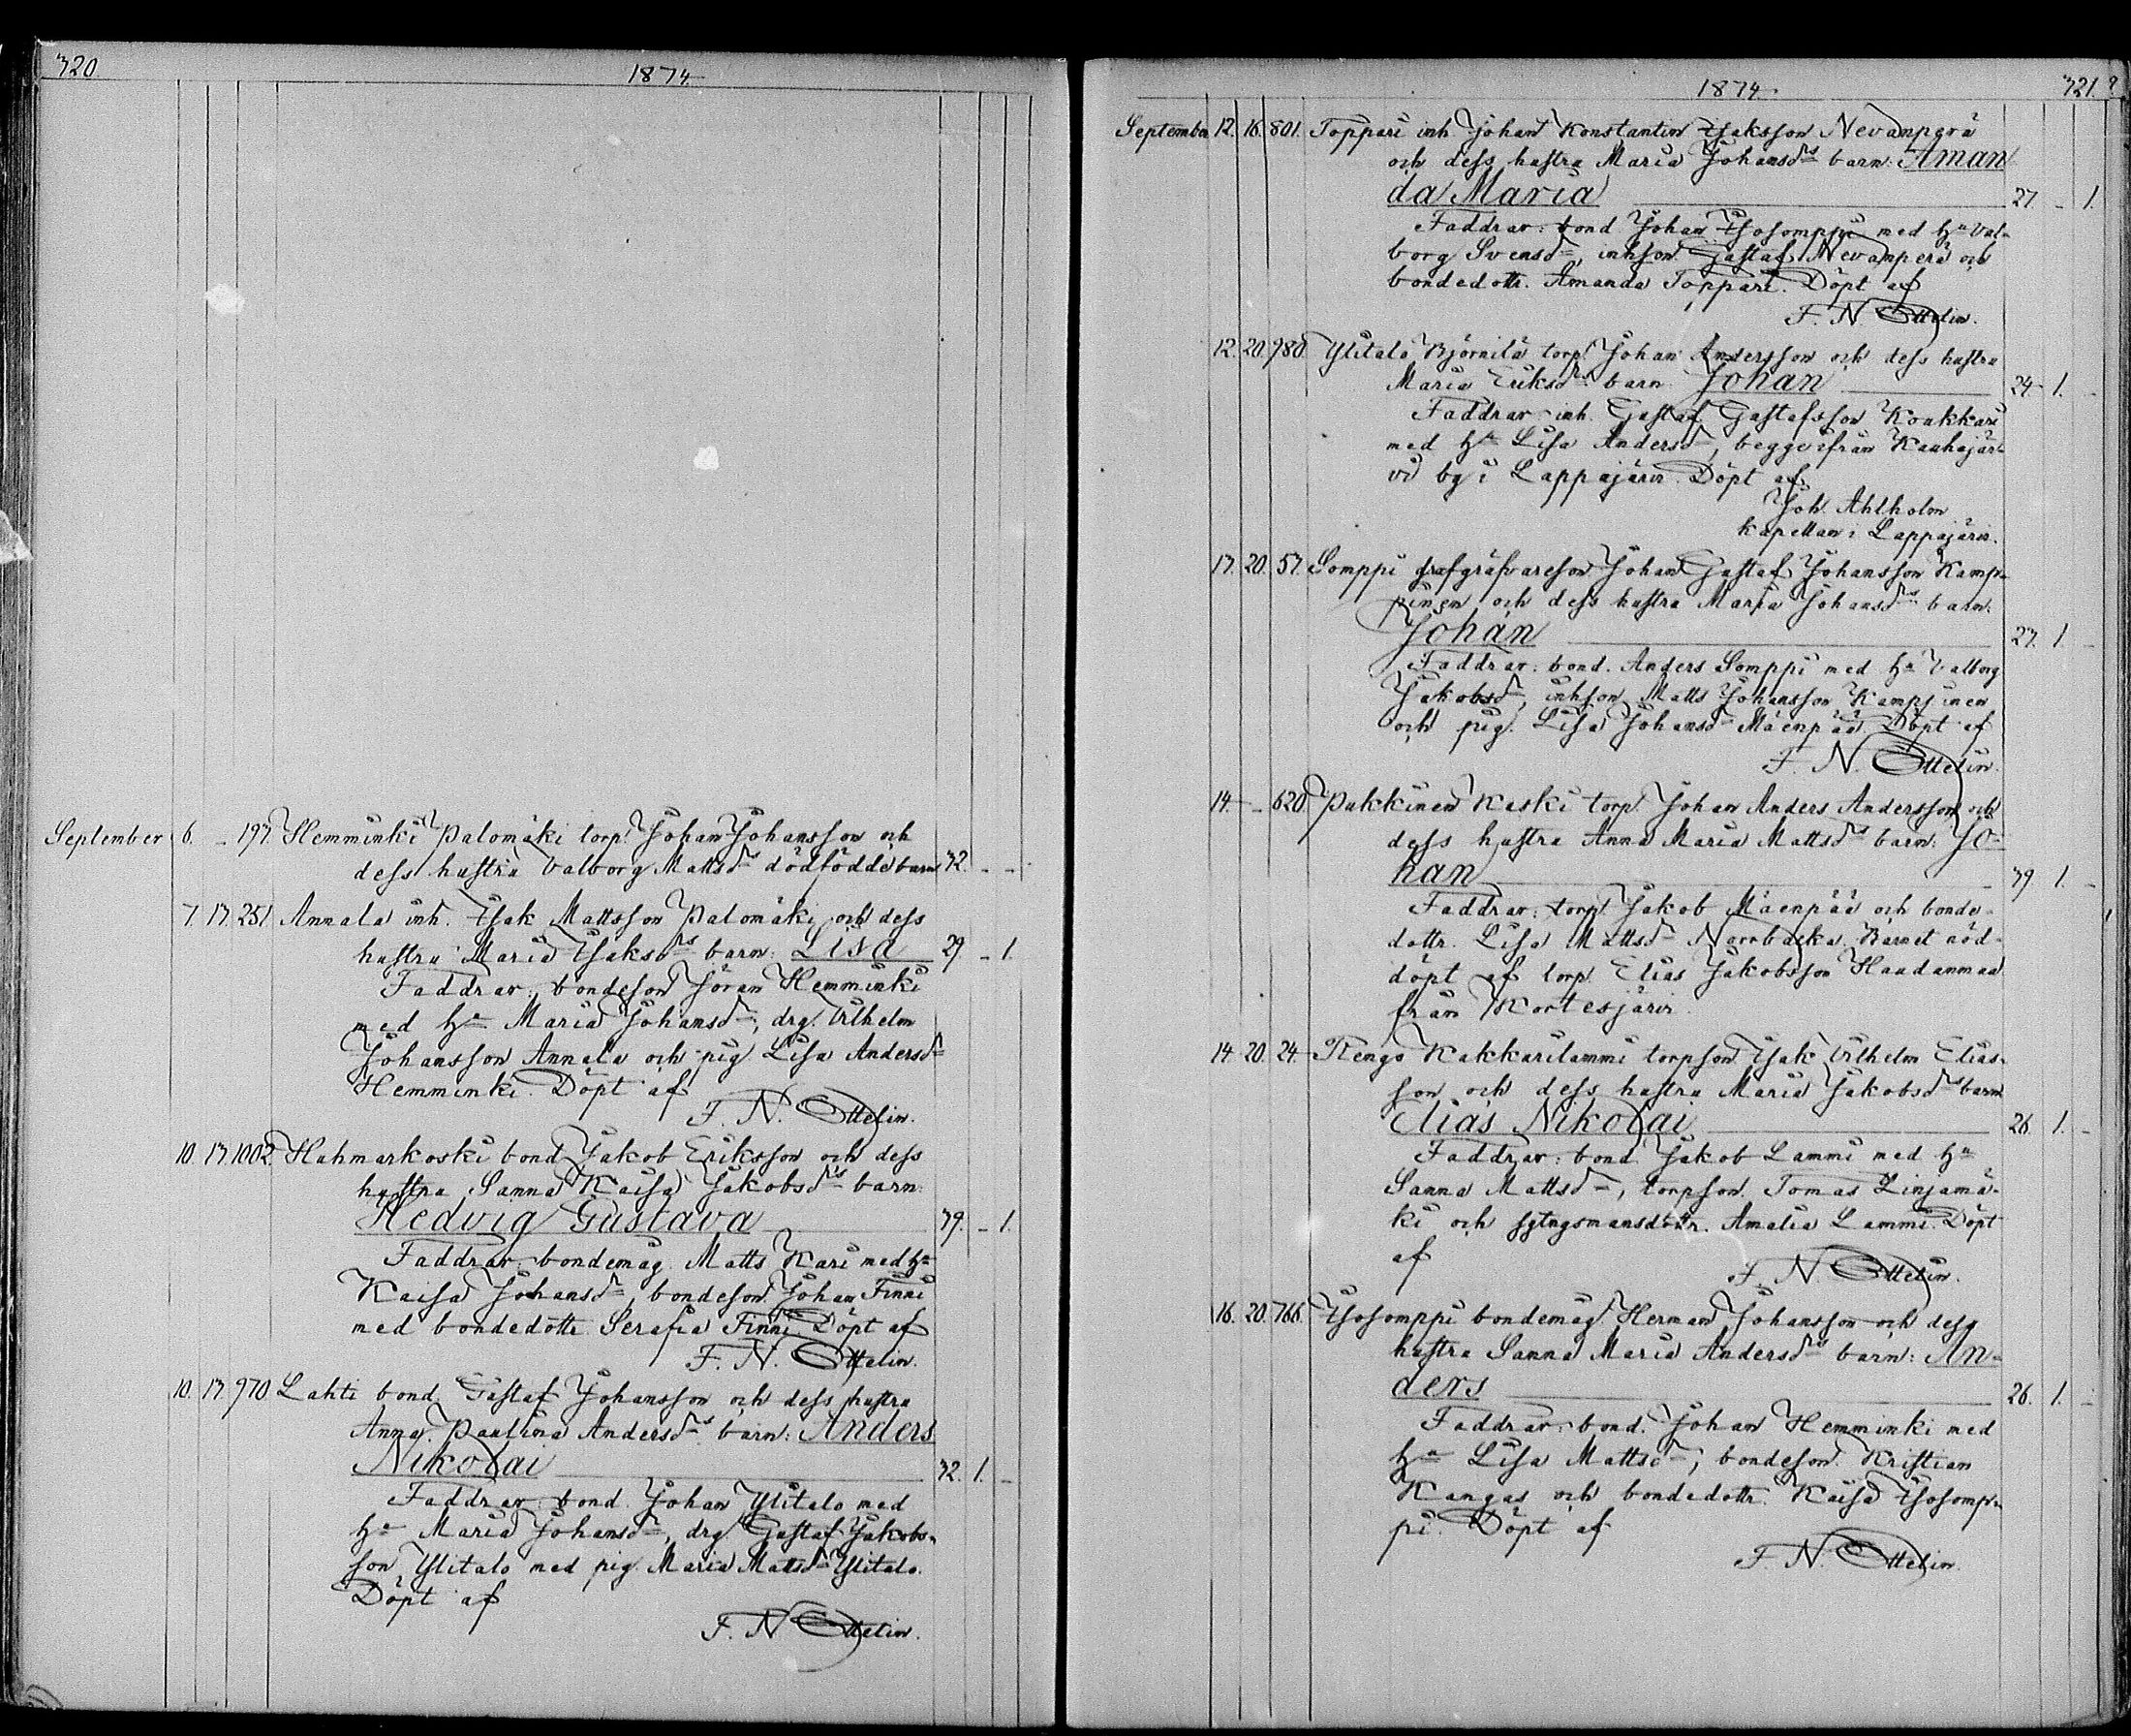 320.
1874.
September 6. – 193. Hemminki Palomäki torp. Johan Johansson och
dess hustru Valborg Mattsd:rs dödfödde barn 32. – –
7. 13. 251. Annala inh. Isak Mattsson Palomäki och dess
hustru Maria Isaksd:rs barn: Lisa 29 – 1.
Faddrar: bondeson Jöran Hemminki
med h:u Maria Johansd:r, drg. Vilhelm
Johansson Annala och pig Lisa Andersd:r
Hemminki. Döpt af
F. N. Ottelin.
10. 13. 1002. Hahmarkoski bond Jakob Eriksson och dess
hustru Sanna Kaisa Jakobsd:rs barn:
Hedvig Gustava 39. – 1.
Faddrar: bondemåg. Matts Kari med h:u
Kaisa Johansd:r, bondeson Johan Finni
med bondedottr Serafia Finni. Döpt af
F. N. Ottelin.
10. 13. 970. Lahti bond. Gustaf Johansson och dess hustru
Anna Paulina Andersd:rs barn: Anders
Nikolai 32. 1. –
Faddrar: bond. Johan Ylitalo med
h:u Maria Johansd:r, drg. Gustaf Jakobs-
son Ylitalo med pig. Maria Mattsd:r Ylitalo.
Döpt af
F. N. Ottelin.
1874.
321.
September 12. 16. 801. Toppari inh. Johan Konstantin Isaksson Nevanperä
och dess hustru Maria Johansd:rs barn: Aman
da Maria 27. – 1.
Faddrar: bond Johan Isosomppi med h:u Val-
borg Svensd:r, inhson Gustaf Nevanperä och
bondedottr. Amanda Toppari. Döpt af
F. N. Ottelin.
12. 20. 980. Ylitalo Björnilä torp. Johan Andersson och dess hustru
Maria Eriksd:rs barn Johan 24 1. –
Faddrar: inh. Gustaf Gustafsson Koukkari
med h:u Lisa Andersd:r, begge ifrån Kauhajär-
vi by i Lappajärvi. Döpt af
Joh. Ahlholm
kapellan i Lappajärvi.
13. 20. 53. Somppi grafgräfvareson Johan Gustaf Johansson Kamp-
pinen och dess hustru Maria Johansd:rs barn:
Johan 23. 1. –
Faddrar: bond. Anders Somppi med h:u Valborg
Jakobsd:r, inhson Matts Johansson Kamppinen
och pig. Lisa Johansd:r Mäenpää. Döpt af
F. N. Ottelin.
14. – 620. Pukkinen Kaski torp. Johan Anders Andersson och
dess hustru Anna Maria Mattsd:rs barn: Jo-
han 39. 1. –
Faddrar: torp. Jakob Mäenpää och bonde-
dottr. Lisa Mattsd:r Norrbacka. Barnet nöd-
döpt af torp. Elias Jakobsson Haudanmaa
från Kortesjärvi.
14. 20. 24. Rengo Kakkurilammi torpson Isak Vilhelm Elias-
son och dess hustru Maria Jakobsd:rs barn
Elias Nikolai 26. 1. –
Faddrar: bond. Jakob Lammi med h:u
Sanna Mattsd:r, torpson. Tomas Linjamä-
ki och sytngsmansdottr. Amalia Lammi. Döpt
af
F. N. Ottelin.
16. 20. 766. Isosomppi bondemåg Herman Johansson och dess
hustru Sanna Maria Andersd:rs barn: An-
ders 26. 1. –
Faddrar: bond. Johan Hemminki med
h:u Lisa Mattsd:r, bondeson. Kristian
Kangas och bondedottr. Kaisa Isosomp-
pi. Döpt af
F. N. Ottelin.